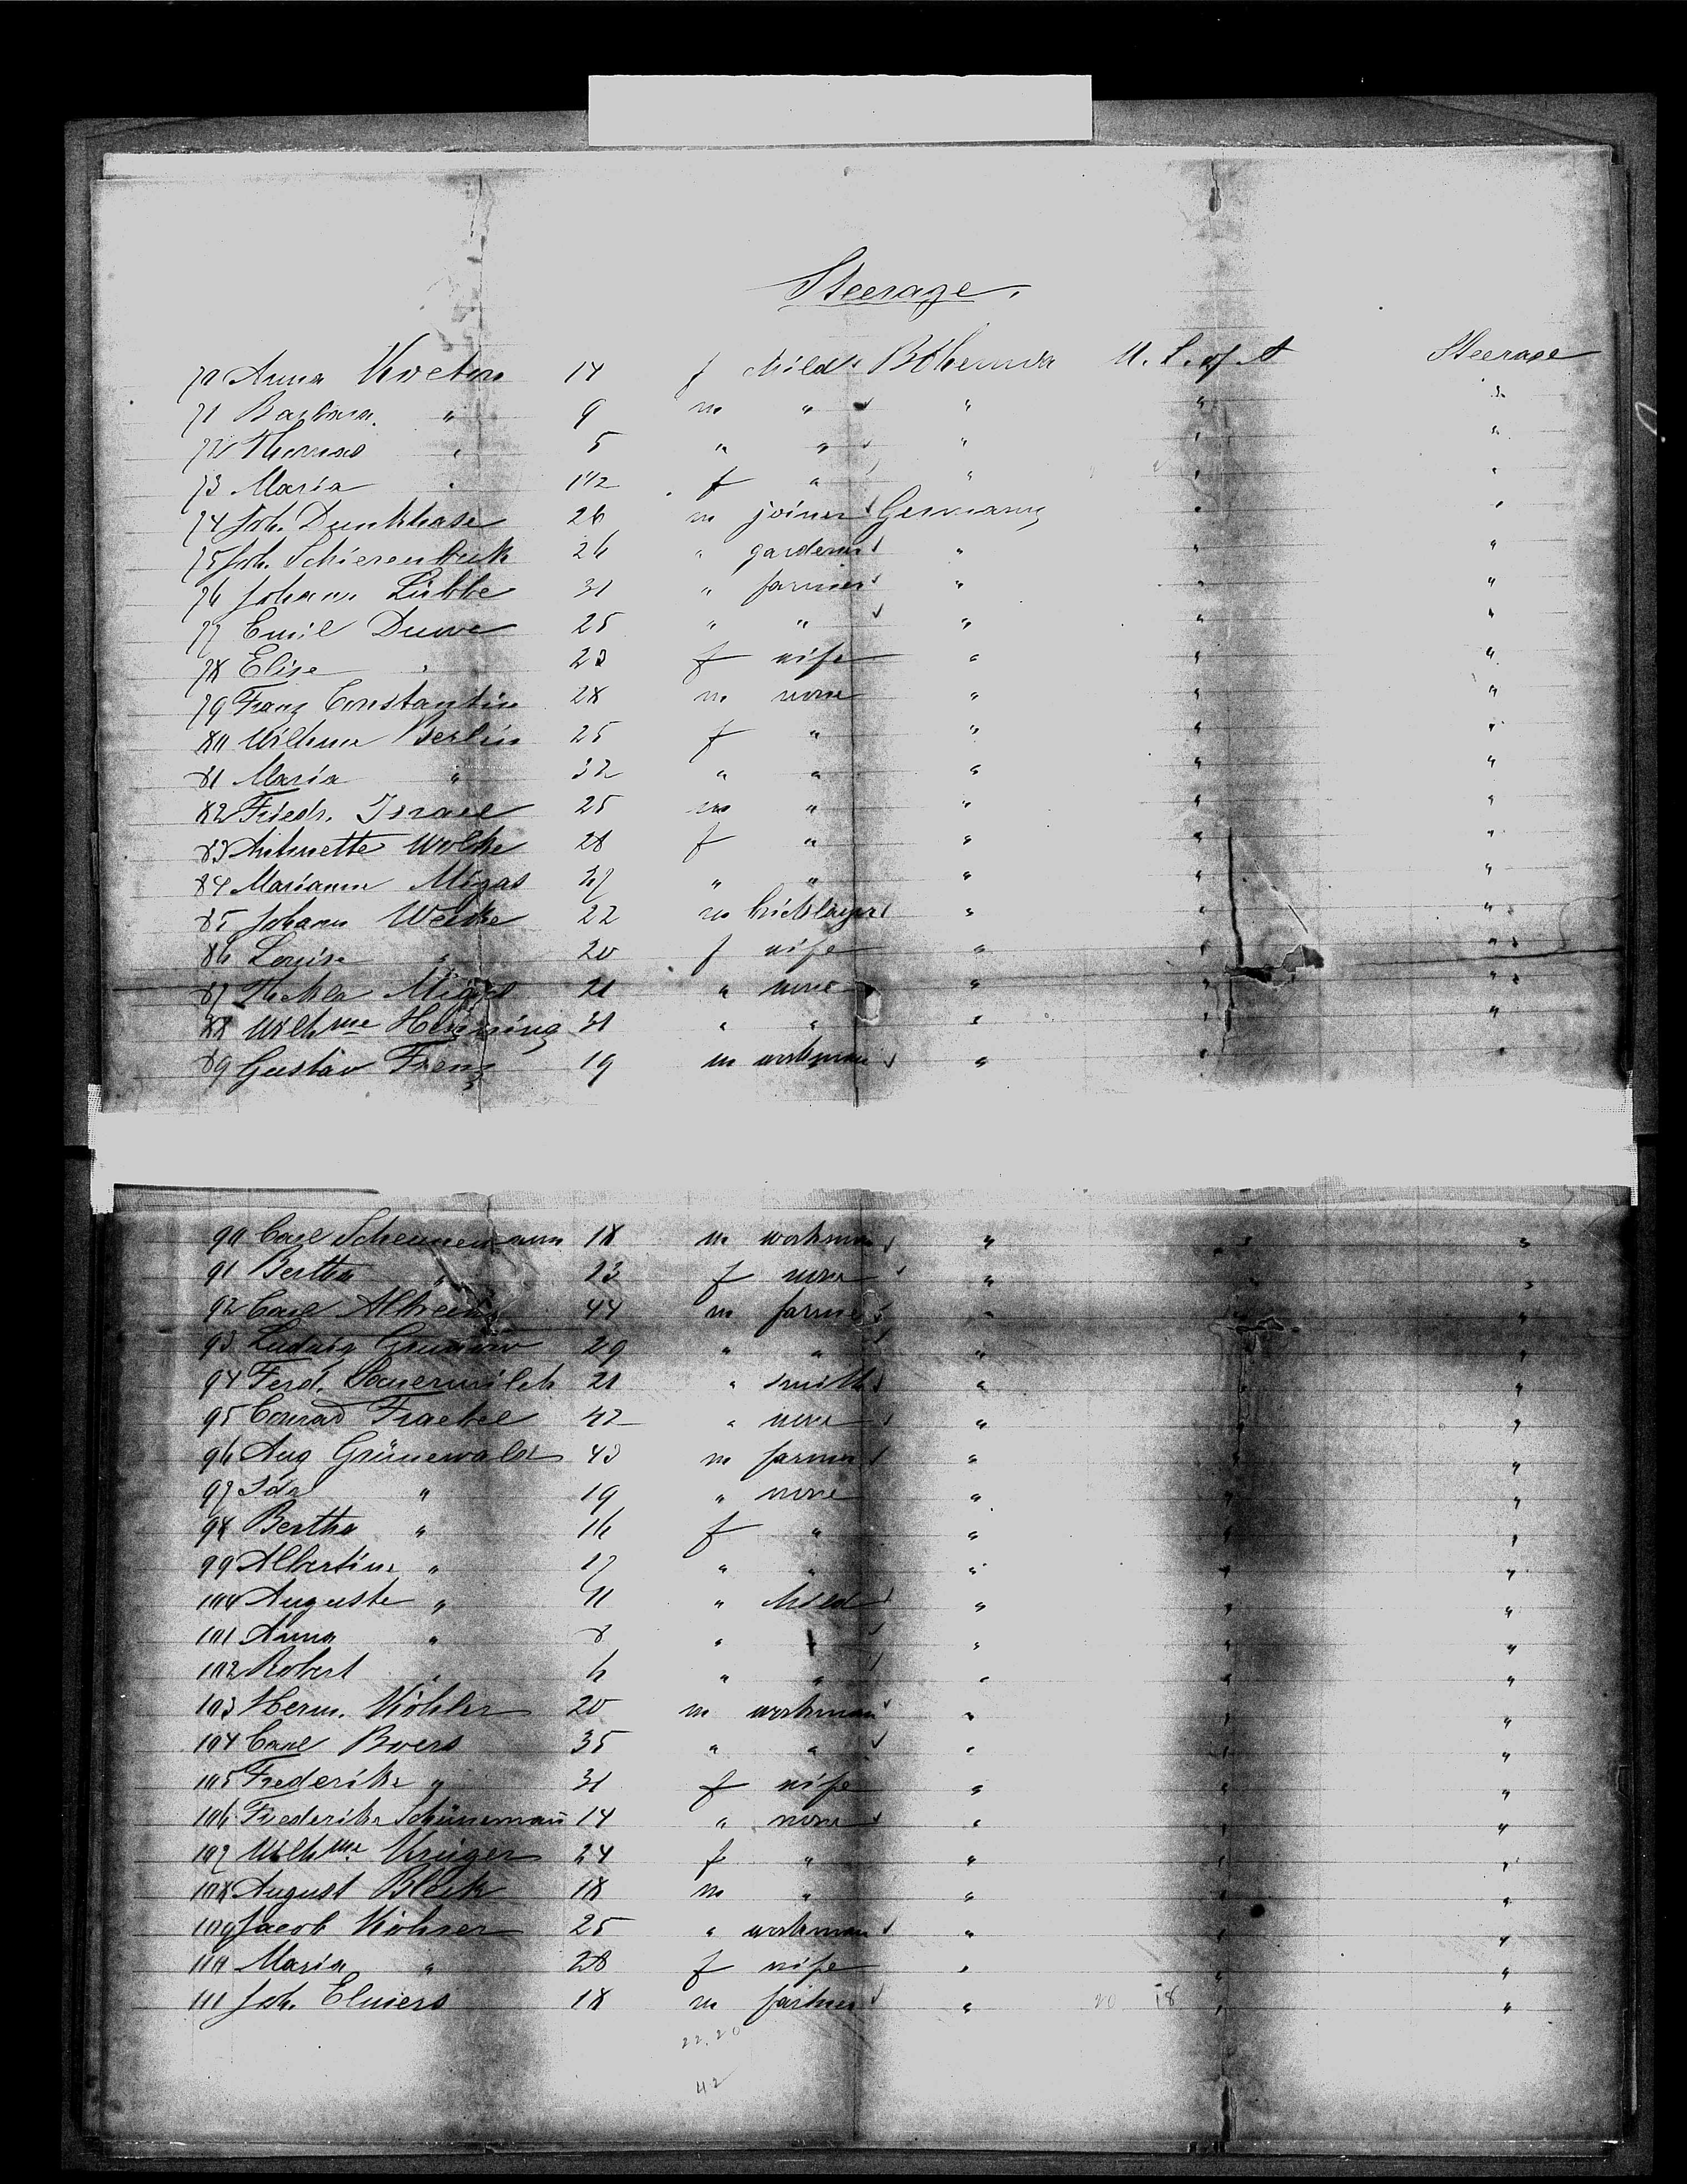 Steerage.
70 Anna Kveton 14 f child Bohemia U. S. of A Steerage
71 Barbara " 9 m " " " "
72 Thomas " 5 " " " " "
73 Maria " 1 1/2 f " " " "
74 Joh. Dunkhase 26 m joiner Germany " "
75 Joh. Schierenbeck 26 " gardener " " "
76 Johann Lübbe 31 " farmer " " "
77 Emil Duwe 25 " " " " "
78 Elise " 23 f wife " " "
79 Franz Constantin 28 m none " " "
80 Wilhme Berlin 25 f " " " "
81 Maria " 32 " " " " "
82 Friedr. Israel 25 m " " " "
83 Antonette Wolke 28 f " " " "
84 Marianne Migas 37 " " " " "
85 Johann Weike 22 m bricklayer " " "
86 Louise " 20 f wife " " "
87 Thekla 21 " none " " "
88 Wilhme 31 " " " " "
89 Gustav Frenz 19 m workman " " "
90 Carl Scheunemann 18 m workman " " "
91 Bertha " 13 f none " " "
92 Carl 44 m farmer " " "
93 Ludwig 29 " " " " "
94 Ferd. Sauermilch 21 " smith " " "
95 Conrad Fraebel 42 " none " " "
96 Aug Grünewald 43 m farmer " " "
97 Ida " 19 " none " " "
98 Bertha " 16 f " " " "
99 Albertine " 17 " " " " "
100 Auguste " 11 " child " " "
101 Anna " 8 " " " " "
102 Robert " 6 " " " " "
103 Herm. Köhler 20 m workman " " "
104 Carl Boers 35 " " " " "
105 Frederike " 31 f wife " " "
106 Friederike Schünemann 14 " none " " "
107 Wilhme Krüger 24 f " " " "
108 August Bleck 18 m " " " "
109 Jacob Köhrer 25 " workman " " "
110 Maria " 28 f wife " " "
111 Joh. Elmers 18 m farmer " 20 18 " "
22. 20
42